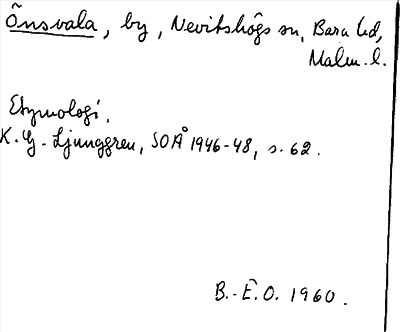 Önsvala, by, Nevitshögs sn, Bara hd,
Malm. l.
Etymologi.
K. G. Ljunggren, SOÅ 1946-48, s. 62.
B.-E.O. 1960.